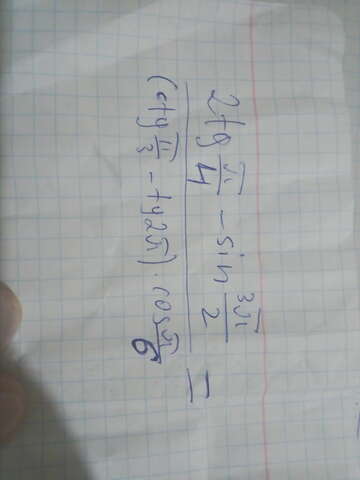 2tg π/4 - sin 3π/2
(ctg π/3 - tg2π) · cos π/6 =